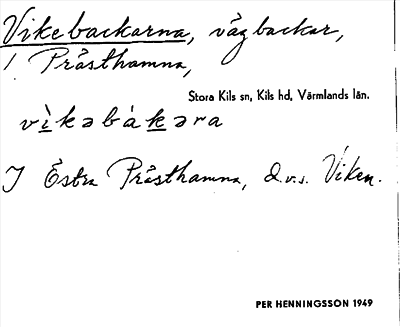 Vikebackarna, vägbackar,
i Prästhamna,
Stora Kils sn, Kils hd, Värmlands län.
vìkəbàkəra
I Östra Prästhamna, d.v.s. Viken.
PER HENNINGSSON 1949